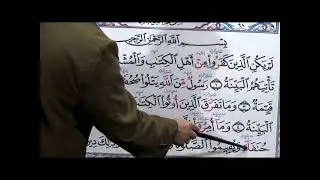 بِسْمِ اللَّهِ الرَّحْمَٰنِ الرَّحِيمِ
لَمْ يَكُنِ الَّذِينَ كَفَرُوا مِنْ أَهْلِ الْكِتَابِ وَالْمُشْ
تَأْتِيَهُمُ الْبَيِّنَةُ ۝ رَسُولٌ مِنَ اللَّهِ يَتْلُو صُحُفًا
قَيِّمَةٌ ۝ وَمَا تَفَرَّقَ الَّذِينَ أُوتُوا الْكِتَ
الْبَيِّنَةُ ۝ وَمَا أُمِرُوا
حُنَفَاءَ وَيُقِيمُوا الصَّلَاةَ